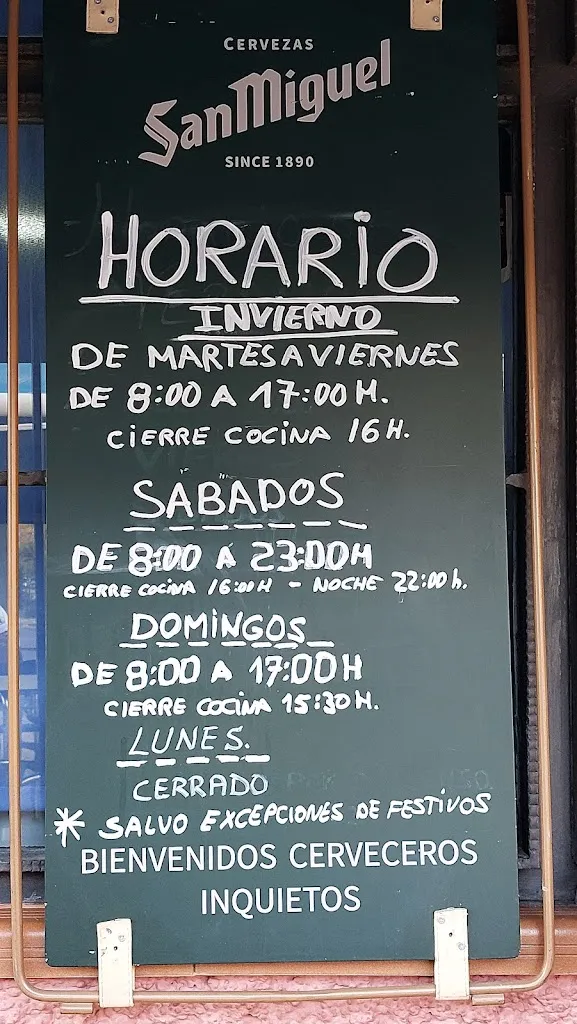 CERVEZAS
SanMiguel
SINCE 1890
HORARIO
INVIERNO
DE MARTES A VIERNES
DE 8:00 A 17:00 H.
CIERRE COCINA 16 H.
SABADOS
DE 8:00 A 23:00 H
CIERRE COCINA 16:00 H - NOCHE 22:00 h.
DOMINGOS
DE 8:00 A 17:00 H
CIERRE COCINA 15:30 H.
LUNES.
CERRADO
* SALVO EXCEPCIONES DE FESTIVOS
BIENVENIDOS CERVECEROS
INQUIETOS